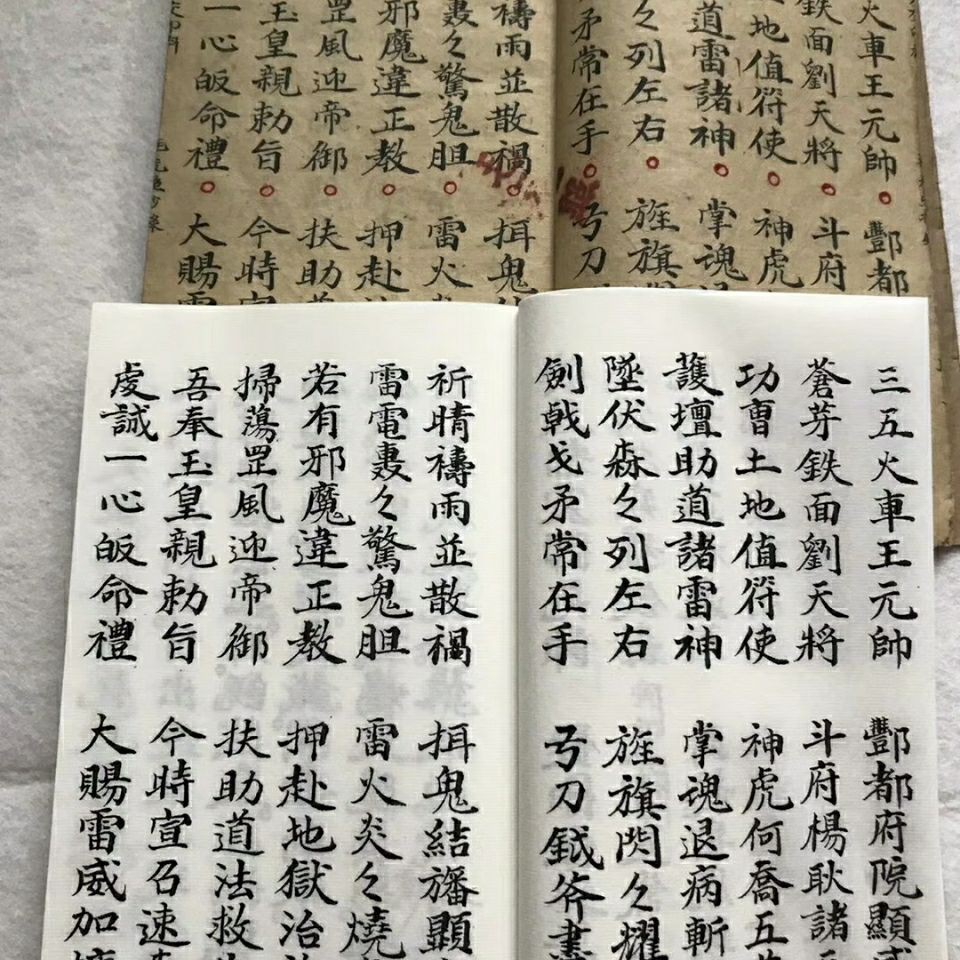 火車王元帥 酆都
鉄面劉天將 斗府
地值符使 神虎
道雷諸神 掌魂
々列左右 旌旗
矛常在手 弓刀
禱雨並散禍 挕鬼
轟々驚鬼胆 雷火
邪魔違正教 押赴
罡風迎帝御 扶助
玉皇親勅旨 今時
一心皈命禮 大賜
三五火車王元帥 酆都府院顯
蒼芽鉄面劉天將 斗府楊耿諸
功曹土地值符使 神虎何喬五
護壇助道諸雷神 掌魂退病斬
墜伏森々列左右 旌旗閃々耀
劍戟戈矛常在手 弓刀鉞斧
祈晴禱雨並散禍 挕鬼結旛顯
雷電轟々驚鬼胆 雷火炎々燒
若有邪魔違正教 押赴地獄治
掃蕩罡風迎帝御 扶助道法救
吾奉玉皇親勅旨 今時宣召速
虔誠一心皈命禮 大賜雷威加